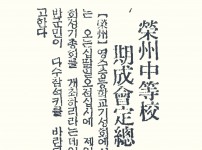 榮州中等校
期成會定總
【榮州】영주중등학교기성회에서
는 오는십팔일오전십시에 제이
회정기총회를 개최하리라는데일
반부민이 다수참석키를 바란
고한다